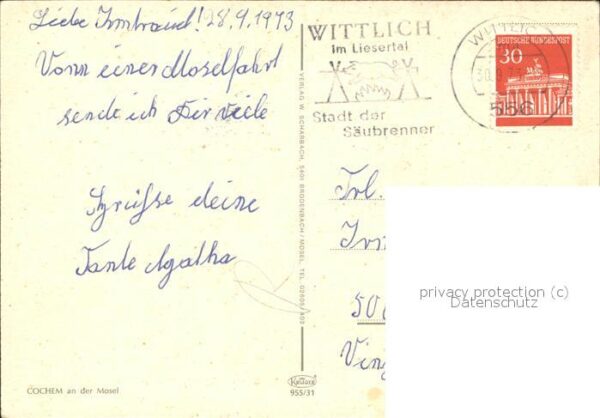 Liebe Irmtraud! 28.9.1973
Von einer Moselfahrt
sende ich Dir viele
Grüße deine
Tante Agatha
COCHEM an der Mosel
VERLAG W. SCHARBACH, 5401 BRODENBACH/MOSEL, TEL. 02605/403
955/31
WITTLICH
im Liesertal
Stadt der
Säubrenner
WITTLIC
30.9.7
556
DEUTSCHE BUNDESPOST
30
Frl.
Irm
500
Ving
privacy protection (c)
Datenschutz